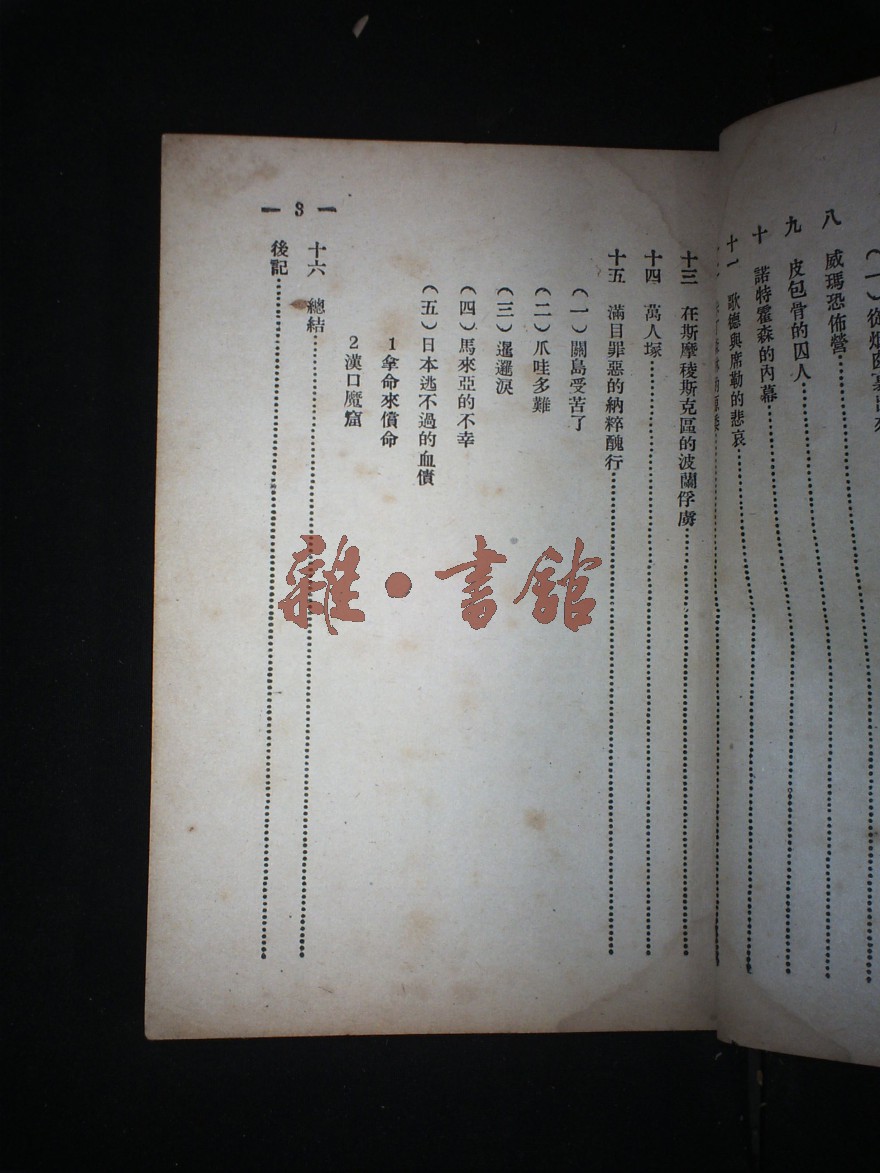 （一）從烟囪裏出來
八　威瑪恐佈營
九　皮包骨的囚人
十　諾特霍森的內幕
十一　歌德與席勒的悲哀
十三　在斯摩稜斯克區的波蘭俘虜
十四　萬人塚
十五　滿目罪惡的納粹醜行
（一）關島受苦了
（二）爪哇多難
（三）暹邏淚
（四）馬來亞的不幸
（五）日本逃不過的血債
1拿命來償命
2漢口魔窟
十六　總結
後記
— 3 —
雜·書館